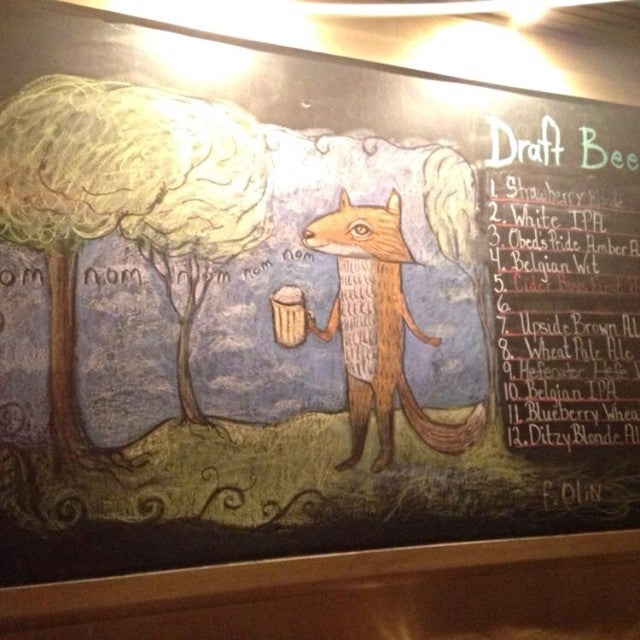 om nom nom nom nom
Draft Bee
1. Strawberry
2. White IPA
3. Obedstride Amber A
4. Belgian Wit
5.
6.
7. Upside Brown Al
8. Wheat Pale Ale
9. Hefe
10. Belgian IPA
11. Blueberry Whea
12. Ditzy Blonde Al
F. OLIN